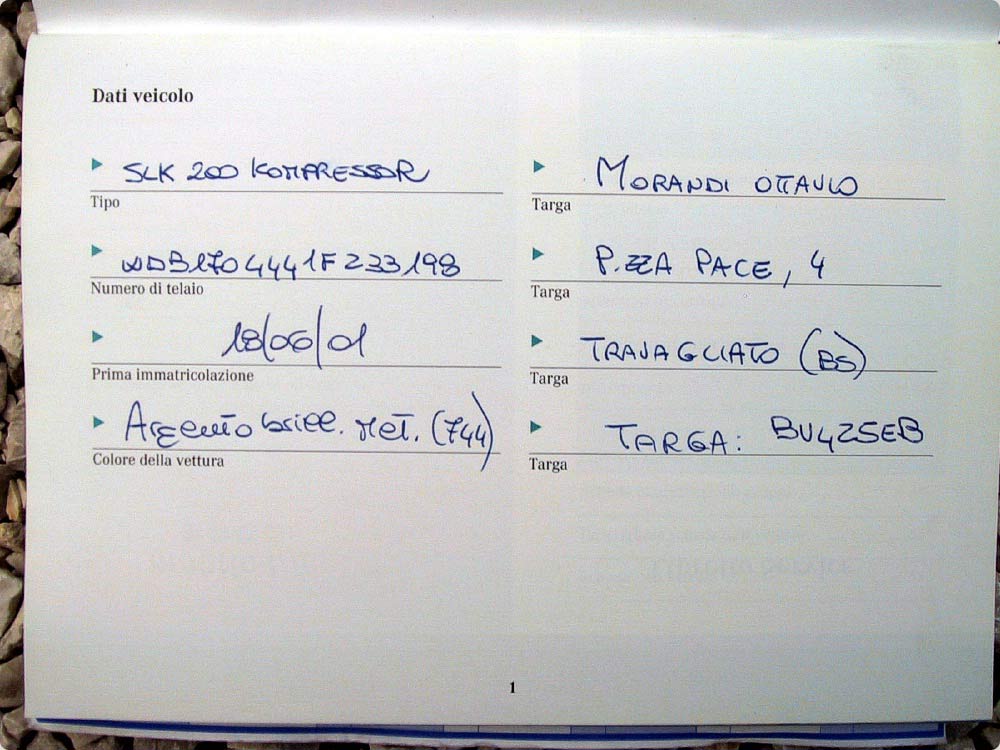 Dati veicolo
SLK 200 KOMPRESSOR
Tipo
WDB1704441F233198
Numero di telaio
18/06/01
Prima immatricolazione
Argento brill. Met. (744)
Colore della vettura
MORANDI OTTAVIO
Targa
P.ZZA PACE, 4
Targa
TRAVAGLIATO (BS)
Targa
TARGA: BU425EB
Targa
1